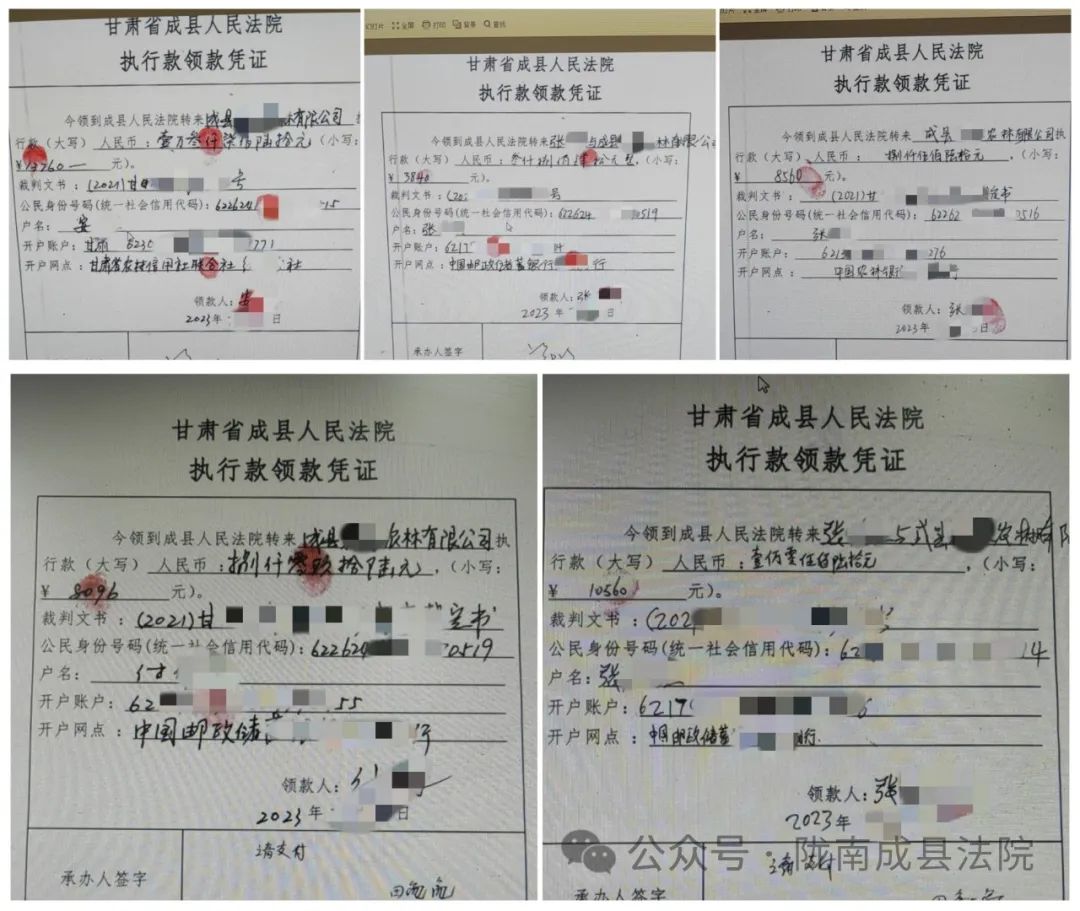 甘肃省成县人民法院
执行款领款凭证
今领到成县人民法院转来 成县 林有限公司
行款（大写）人民币：壹万叁仟柒佰陆拾元（小写：
¥13760 元）。
裁判文书：(2021)甘 号
公民身份号码(统一社会信用代码)：622624 15
户名： 安
开户账户：甘肃 6230 771
开户网点：甘肃省农村信用社联合社 社
领款人：安
2023年 日
全屏 打印 背景 查找
甘肃省成县人民法院
执行款领款凭证
今领到成县人民法院转来张 与成县 林有限公
行款（大写）人民币：叁仟捌佰肆拾元整，（小写：
¥ 3840 元）。
裁判文书：(20 号
公民身份号码(统一社会信用代码)：622624 0519
户名：张
开户账户：6217 4
开户网点：中国邮政储蓄银行 行
领款人：张
2023年 日
承办人签字
甘肃省成县人民法院
执行款领款凭证
今领到成县人民法院转来 成县 农林有限公司执
行款（大写）人民币： 捌仟伍佰陆拾元 ，（小写：
¥ 8560 元）。
裁判文书：(2021)甘 定书
公民身份号码(统一社会信用代码)：62262 0516
户名： 张
开户账户： 621 276
开户网点： 中国农 银
领款人：张
2023年 日
甘肃省成县人民法院
执行款领款凭证
今领到成县人民法院转来 成县 农林有限公司执
行款（大写）人民币：捌仟零玖拾陆元，（小写：
¥ 8096 元）。
裁判文书：(2021)甘 定书
公民身份号码(统一社会信用代码)：622624 0519
户名：
开户账户：62 55
开户网点：中国邮政储 行
领款人：
2023年 日
请支付
承办人签字
甘肃省成县人民法院
执行款领款凭证
今领到成县人民法院转来张 与成县 农林有限
行款（大写）人民币：壹佰零伍佰陆拾元 ，（小写：
¥ 10560 元）。
裁判文书：(202
公民身份号码(统一社会信用代码)：62 14
户名：张
开户账户：6217
开户网点：中国邮政储蓄 银行
领款人：张
2023年
请支付
承办人签字
公众号·陇南成县法院